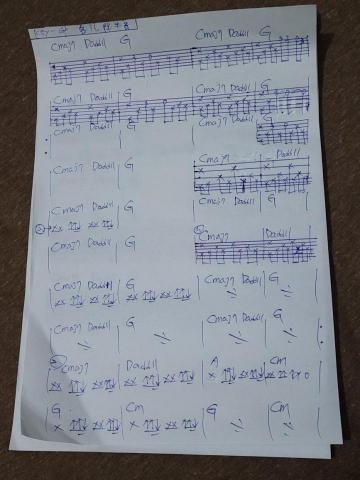 Cmaj7 Dadd11 G Cmaj7 Dadd11 G
Cmaj7 Dadd11 G Cmaj7 Dadd11 G
Cmaj7 Dadd11 G Cmaj7 Dadd11 G
Cmaj7 Dadd11 G Cmaj7 Dadd11
Cmaj7 Dadd11 G Cmaj7 Dadd11 G
Cmaj7 Dadd11 G Cmaj7 Dadd11
Cmaj7 Dadd11 G Cmaj7 Dadd11 G
Cmaj7 Dadd11 G Cmaj7 Dadd11 G
Cmaj7 Dadd11 A Cm
G Cm G Cm